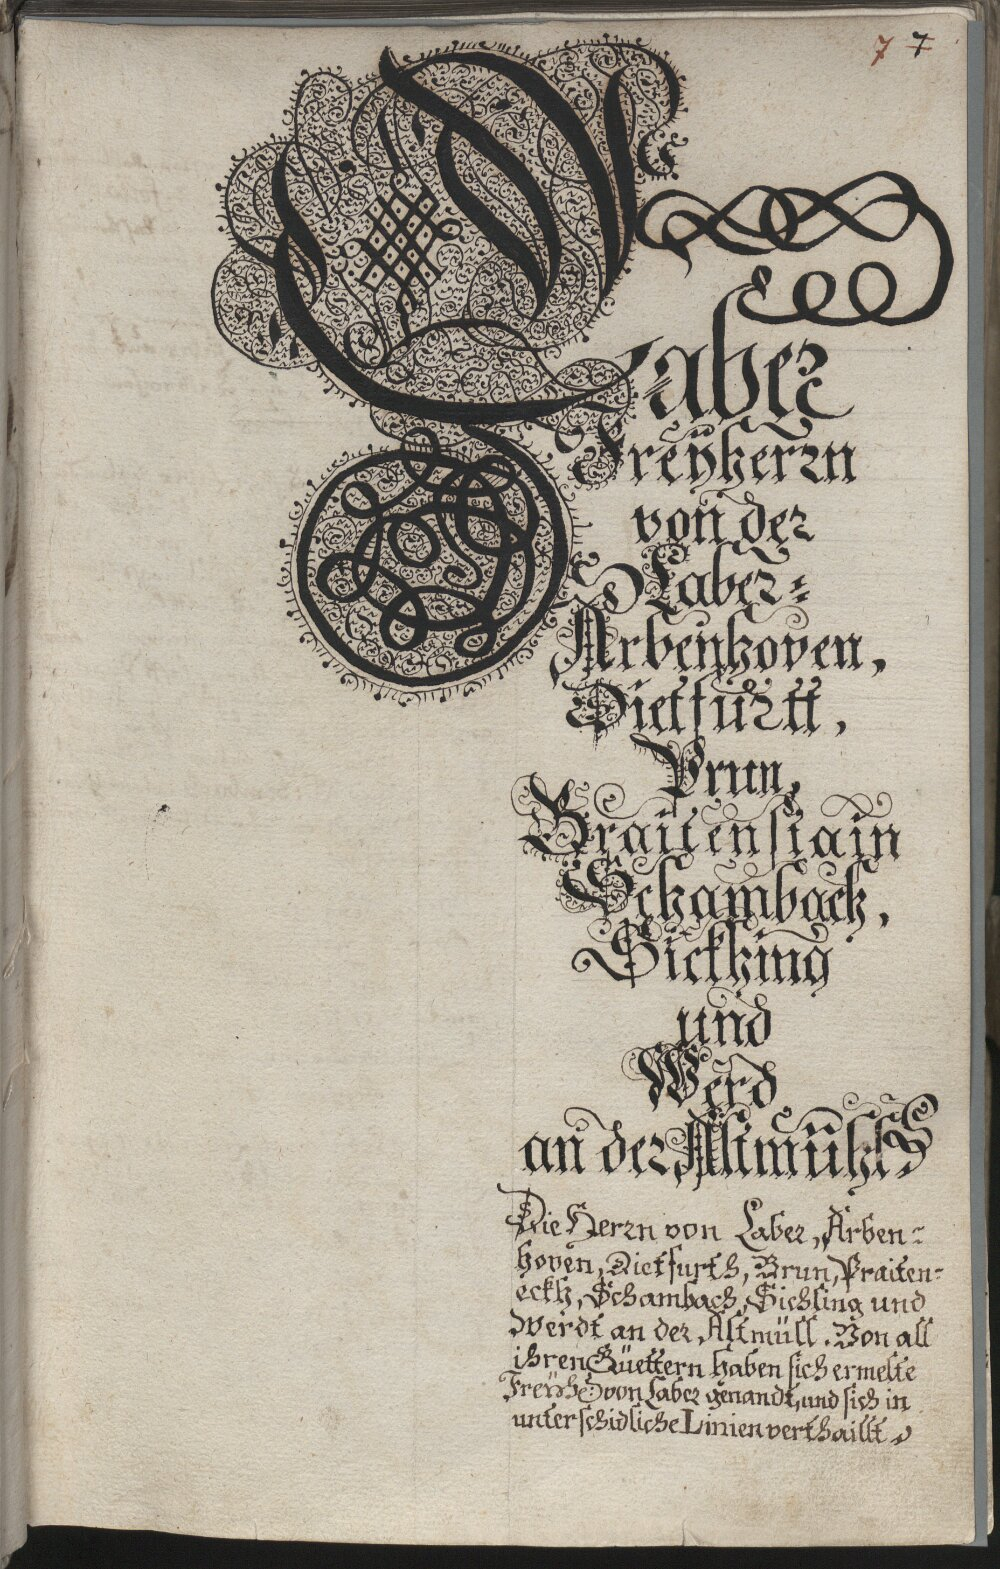 7 7
Laber
Freÿherrn
von der
Laber-
Arbenhoven,
Dietfurtt,
Prun,
Braitenstain
Schambach,
Sickhing
und
Werd
an der Altmühl
Die Herrn von Laber, Arben-
hoven, Dietfurth, Brun, Praiten-
eckh, Schambach, Sichling und
Werdt an der Altmüll. Von all
ihren Güettern haben sich ermelte
Freÿhe: von Laber genandt, und sich in
unterschidliche Linien verthaillt